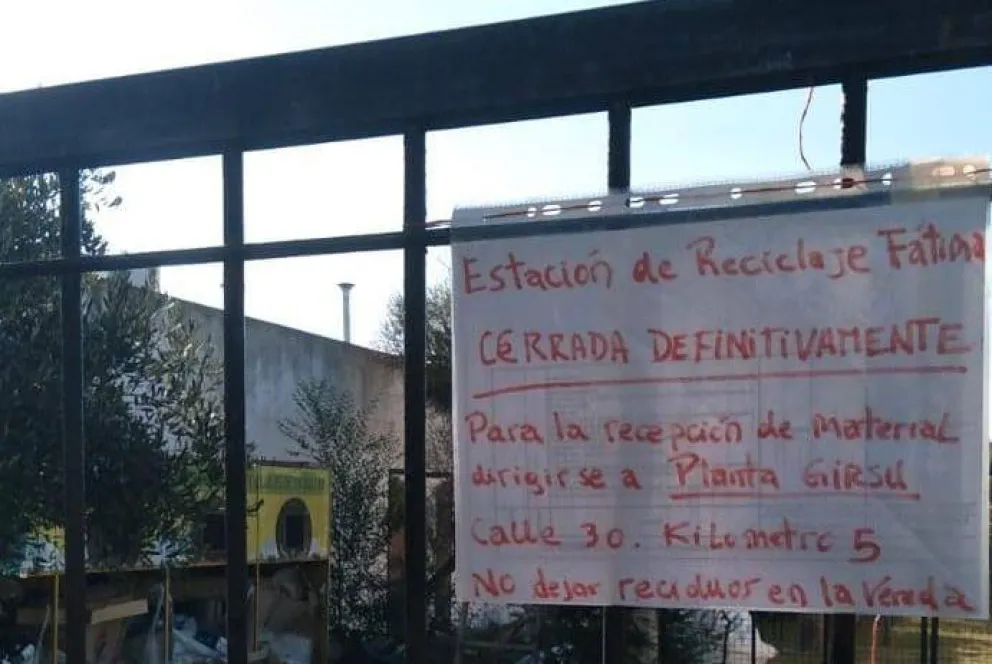 Estación de Reciclaje Fátima
CERRADA DEFINITIVAMENTE
Para la recepción de material
dirigirse a Planta GIRSU
Calle 30. Kilometro 5
No dejar reciduos en la Vereda